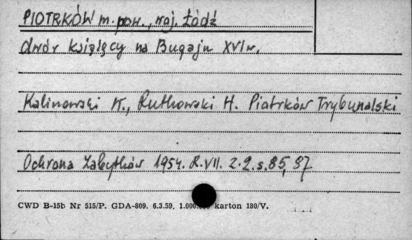 PIOTRKÓW m. pow., woj. Łódź
dwór książęcy na Bugaju XVI w.
Kalinowski K., Rutkowski H. Piotrków Trybunalski
Ochrona Zabytków 1954. R. VII. z. 2. s. 85, 87
CWD B-15b Nr 515/P. GDA-809. 6.3.59, 1.000. karton 180/V.